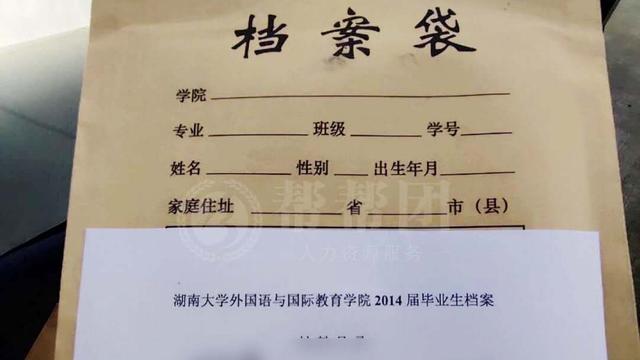 档案袋
学院
专业 班级 学号
姓名 性别 出生年月
家庭住址 省 市（县）
帮帮团
人力资源服务
湖南大学外国语与国际教育学院 2014 届毕业生档案